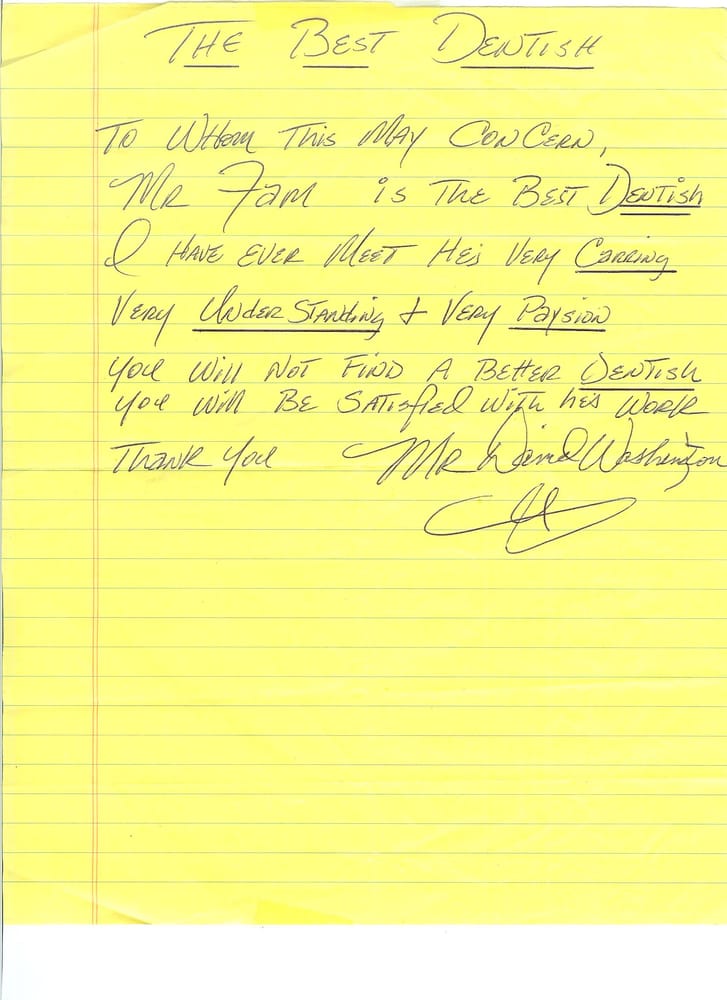 The Best Dentish
To Whom This May Concern,
Mr Fam is The Best Dentish
I Have Ever Meet He's Very Carring
Very UnderStanding & Very Paysion
You Will Not Find A Better Dentish
You Will Be Satisfied With he's Work
Thank You Mr David Washington